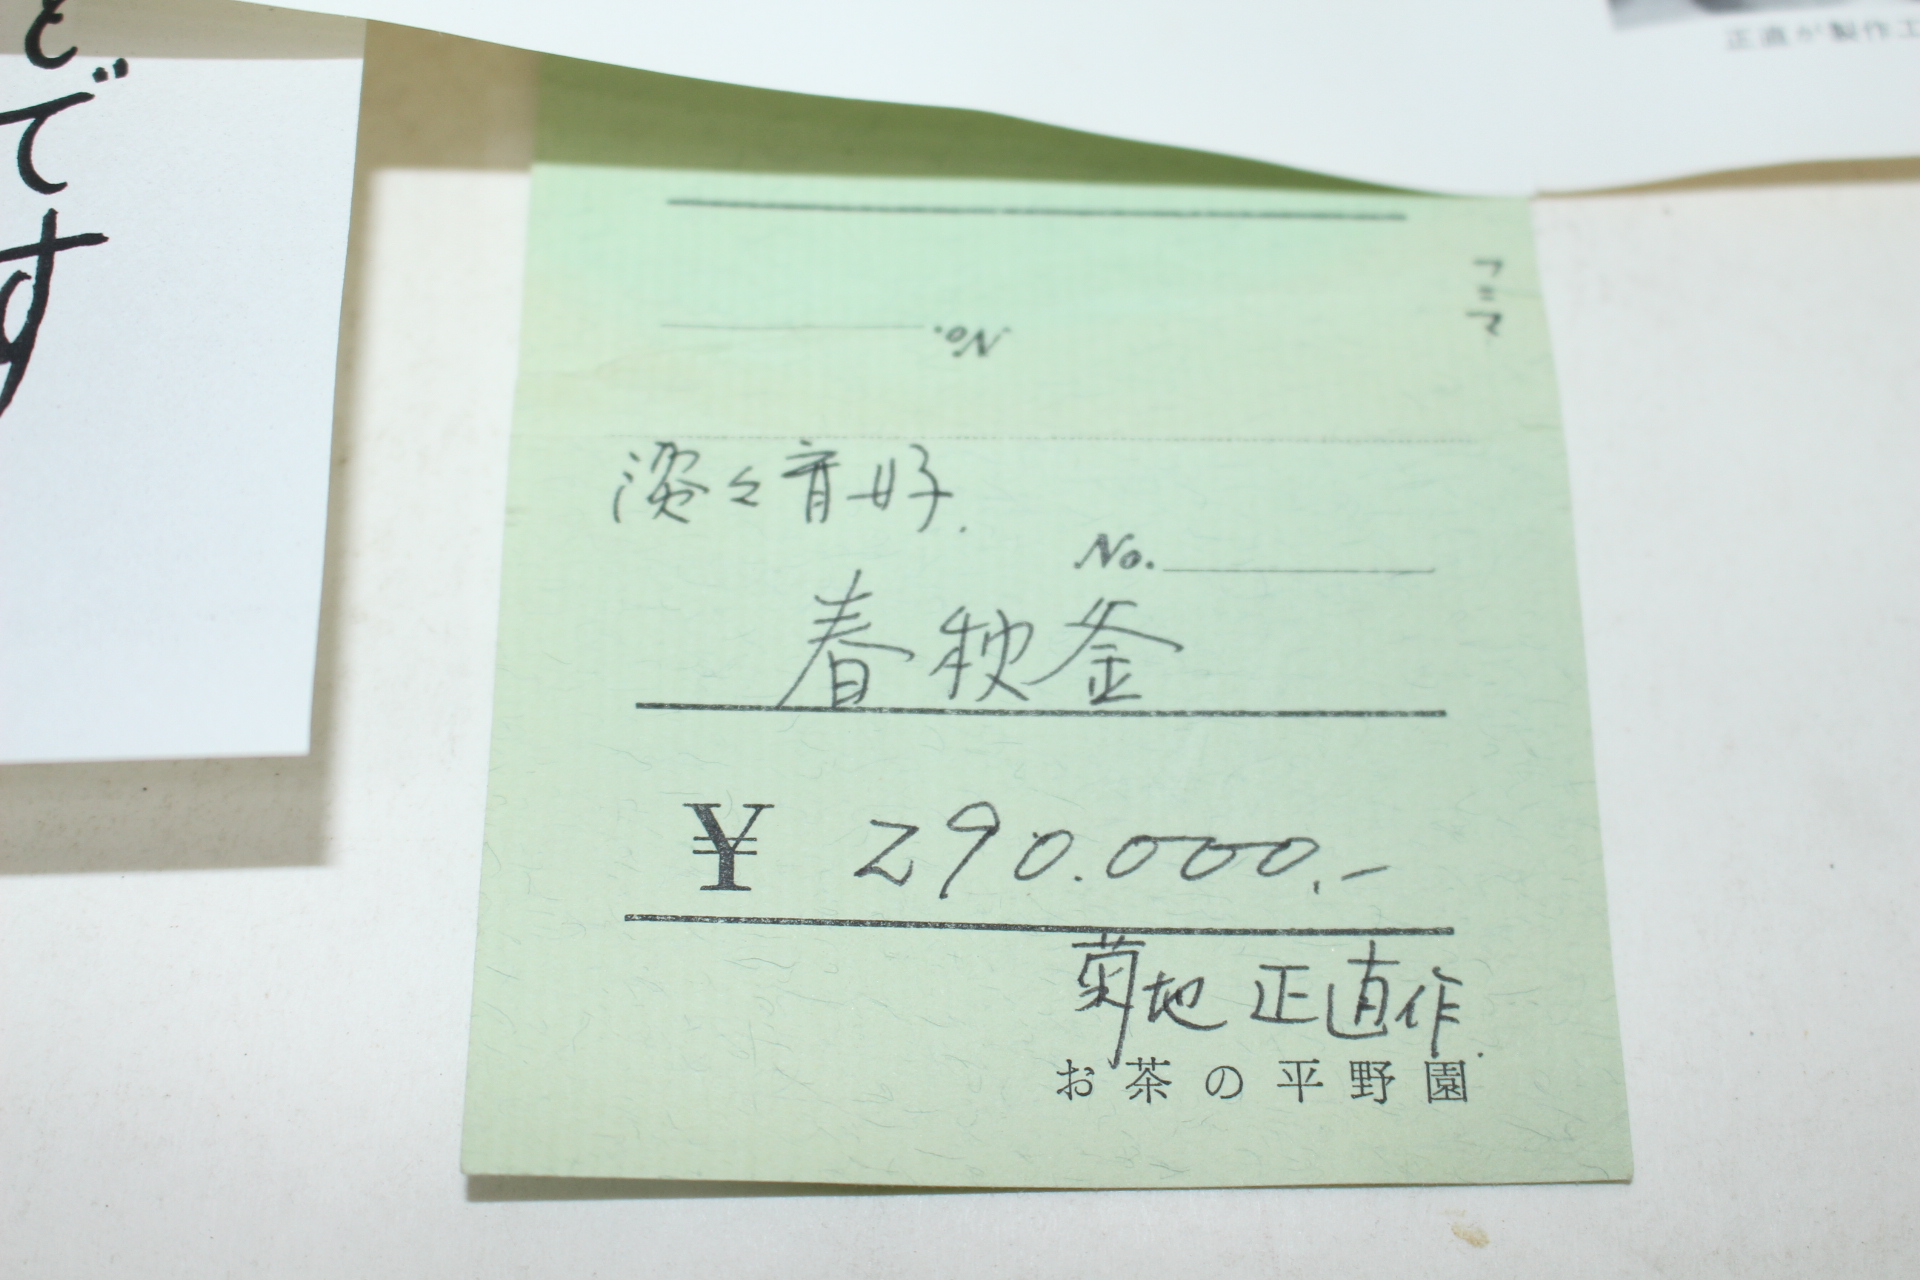 どです
正直が製作工
No.
淡々斎好.
No.
春秋釜
¥ 290.000.-
菊地 正直作.
お茶の平野園